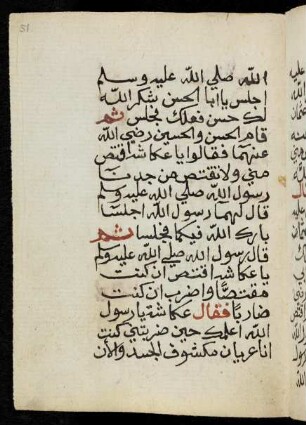 51
الله صلي الله عليه وسلم
اجلس ياابا الحسن شكر الله
لك حسن فعلك فجلس ثم
قام الحسن والحسين رضي الله
عنهما فقالوا يا عكاشه اقتص
مني ولا تقتص من جدنا
رسول الله صلي الله عليه وسلم
قال لهما رسول الله اجلسا
بارك الله فيكما فجلسا ثم
قال رسول الله صلي الله عليه ولم
يا عكاشه اقتص ان كنت
مقتصا واضرب ان كنت
ضاربا فقال عكاشه يا رسول
الله اعلمك حين ضربتني كنت
انا عريان مكشوف الجسد والأن